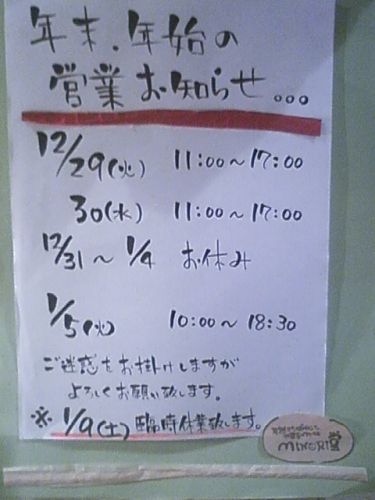 年末.年始の
営業お知らせ...
12/29(火) 11:00~17:00
30(水) 11:00~17:00
12/31~1/4 お休み
1/5(火) 10:00~18:30
ご迷惑をお掛けしますが
よろしくお願い致します。
※1/9(土)臨時休業致します。
MINORI堂